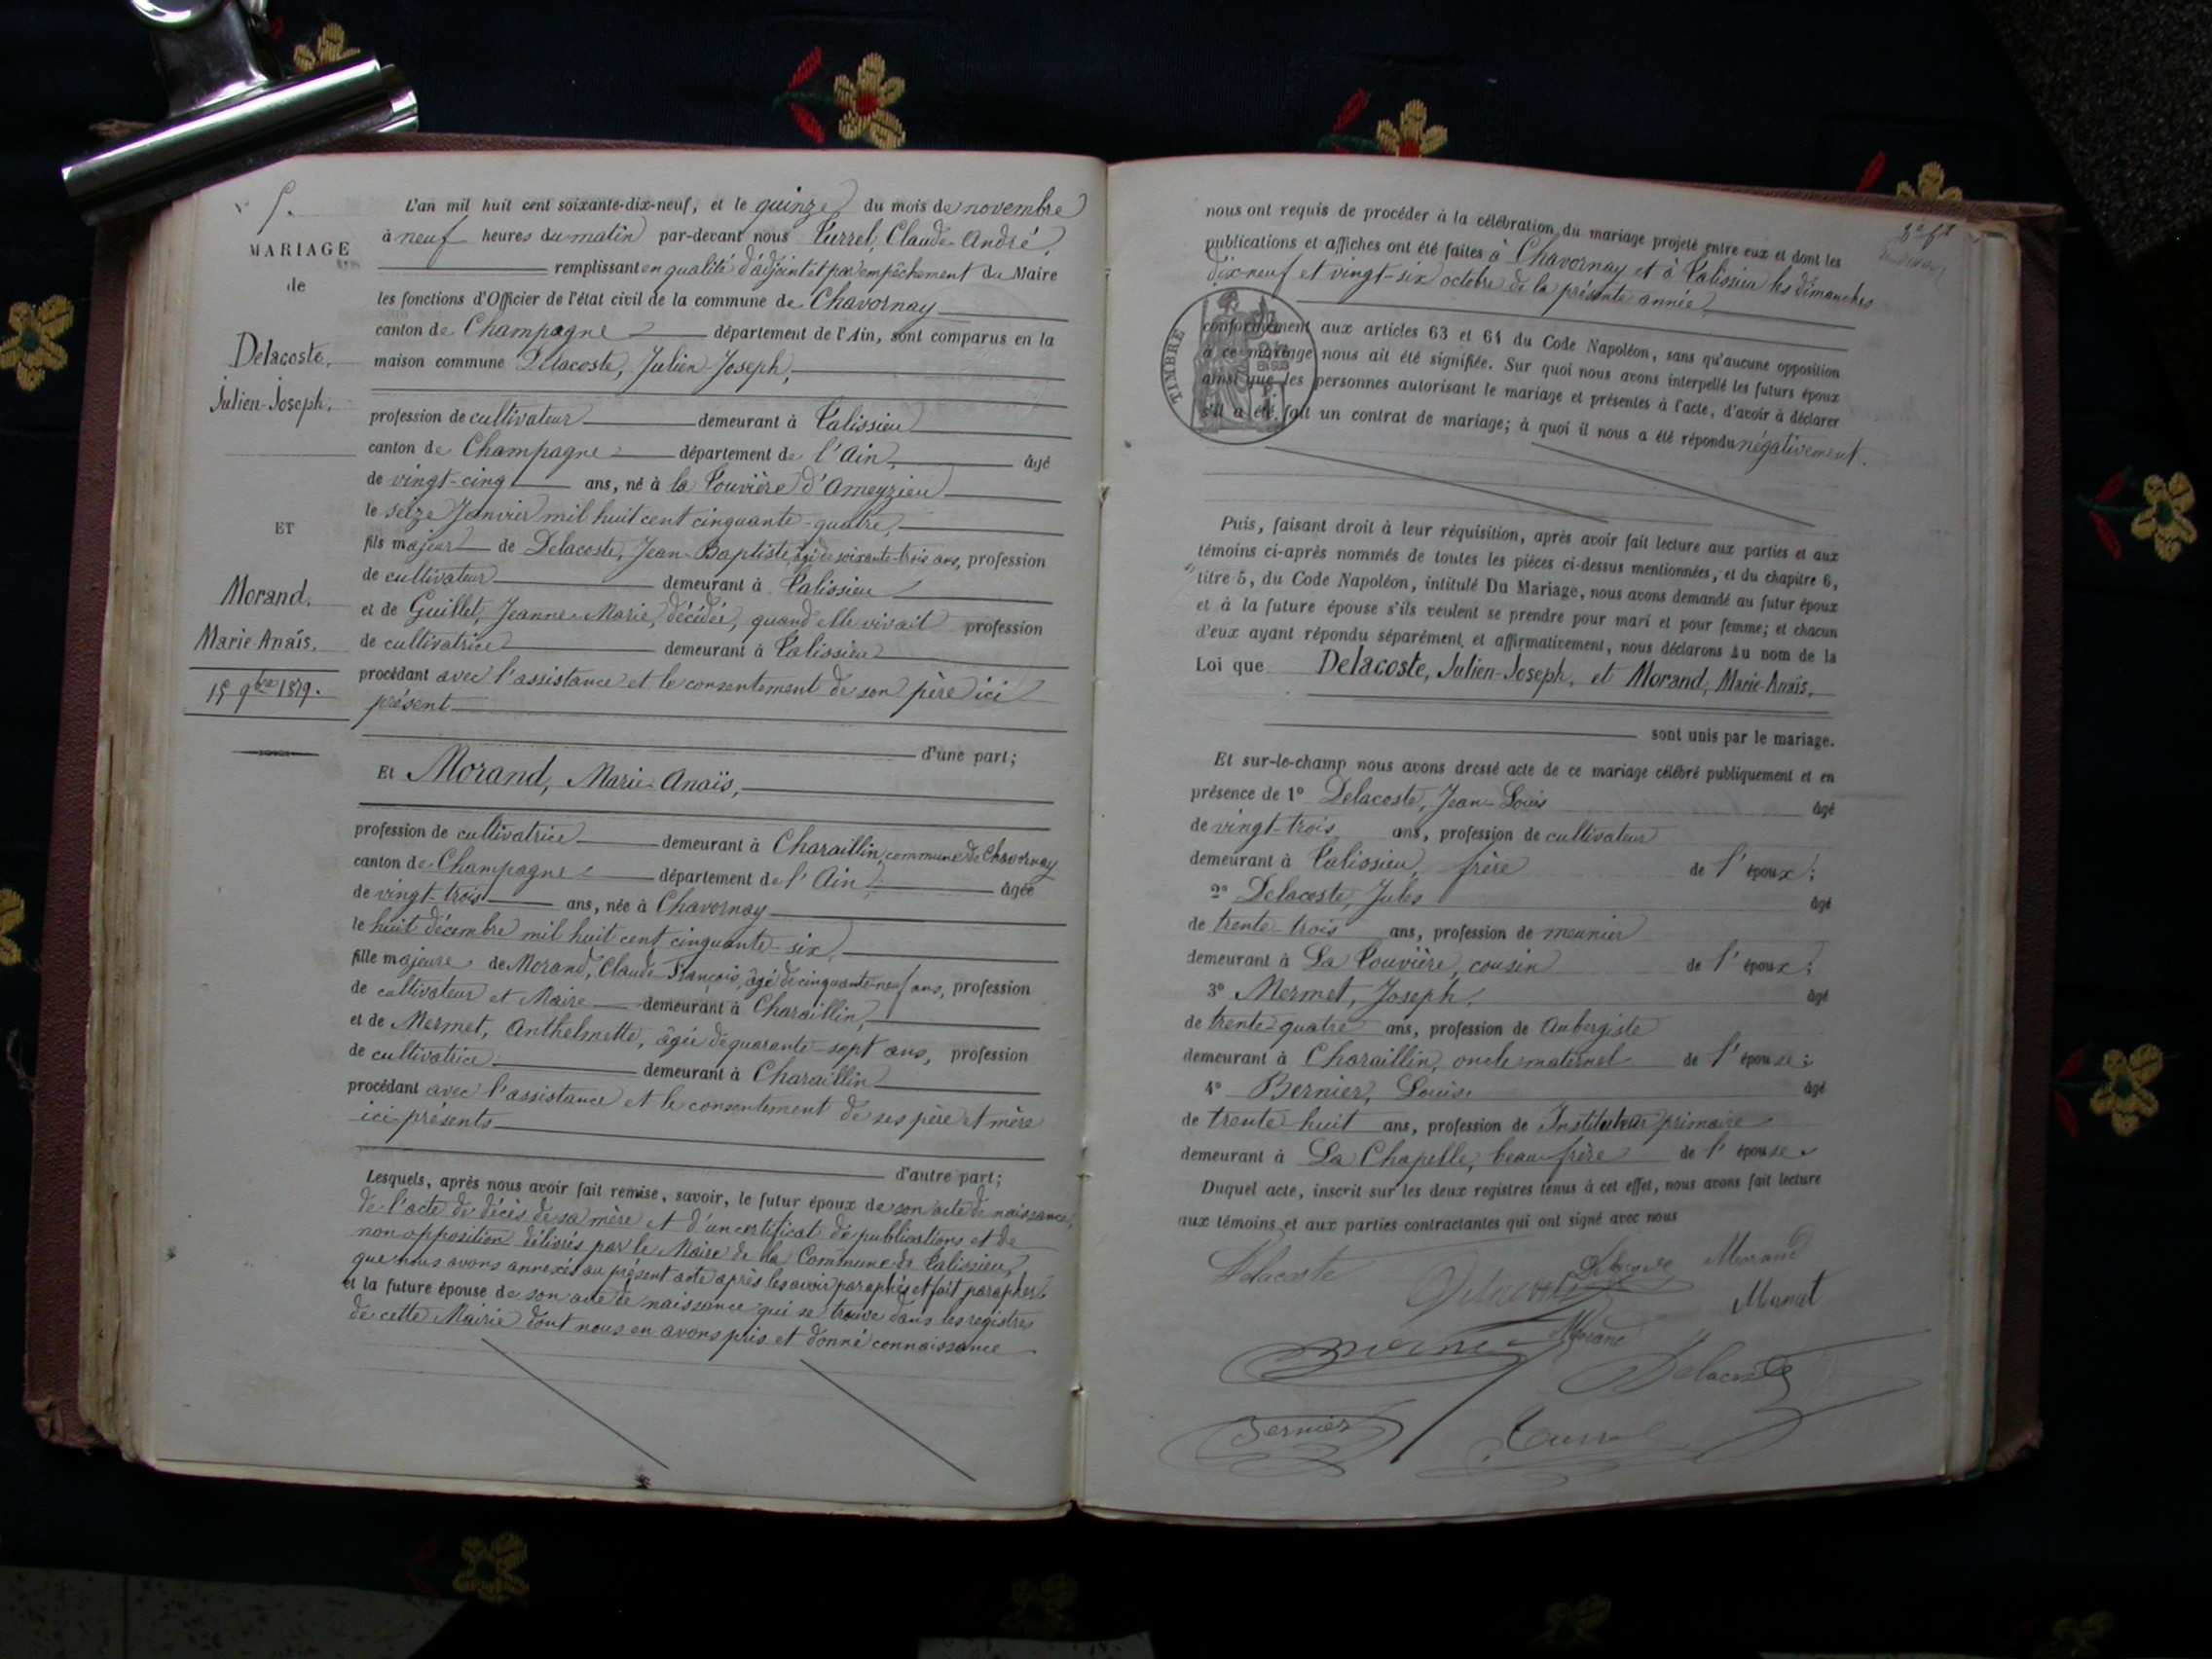 5.
MARIAGE
de
Delacoste,
Julien-Joseph,
ET
Morand,
Marie-Anaïs,
15 9bre 1879.
L'an mil huit cent soixante-dix-neuf, et le quinze du mois de novembre
à neuf heures du matin par-devant nous Turrel, Claude-André,
remplissant en qualité d'adjoint et par empêchement du Maire
les fonctions d'Officier de l'état civil de la commune de Chavornay
canton de Champagne département de l'Ain, sont comparus en la
maison commune Delacoste, Julien-Joseph,
profession de cultivateur demeurant à Talissieu
canton de Champagne département de l'Ain, âgé
de vingt-cinq ans, né à la Touvière d'Ameyzieu
le seize Janvier mil huit cent cinquante-quatre,
fils majeur de Delacoste, Jean-Baptiste, âgé de soixante-trois ans, profession
de cultivateur demeurant à Talissieu
et de Guillet, Jeanne-Marie, décédée, quand elle vivait profession
de cultivatrice demeurant à Talissieu
procédant avec l'assistance et le consentement de son père ici
présent
d'une part;
Et Morand, Marie-Anaïs,
profession de cultivatrice demeurant à Charaillin, commune de Chavornay
canton de Champagne département de l'Ain, âgée
de vingt-trois ans, née à Chavornay
le huit décembre mil huit cent cinquante-six,
fille majeure de Morand, Claude-François, âgé de cinquante-neuf ans, profession
de cultivateur et Maire demeurant à Charaillin,
et de Mermet, Anthelmette, âgée de quarante-sept ans, profession
de cultivatrice demeurant à Charaillin
procédant avec l'assistance et le consentement de ses père et mère
ici présents
d'autre part;
Lesquels, après nous avoir fait remise, savoir, le futur époux de son acte de naissance,
de l'acte de décès de sa mère et d'un certificat de publications et de
non-opposition délivrés par le Maire de la Commune de Talissieu,
que nous avons annexés au présent acte après les avoir paraphés et fait parapher.
et la future épouse de son acte de naissance qui se trouve dans les registres
de cette Mairie dont nous en avons pris et donné connaissance
nous ont requis de procéder à la célébration du mariage projeté entre eux et dont les
publications et affiches ont été faites à Chavornay et à Talissieu les dimanches
dix-neuf et vingt-six octobre de la présente année,
TIMBRE
conformément aux articles 63 et 64 du Code Napoléon, sans qu'aucune opposition
à ce mariage nous ait été signifiée. Sur quoi nous avons interpellé les futurs époux
ainsi que les personnes autorisant le mariage et présentes à l'acte, d'avoir à déclarer
s'il a été fait un contrat de mariage; à quoi il nous a été répondu négativement.
Puis, faisant droit à leur réquisition, après avoir fait lecture aux parties et aux
témoins ci-après nommés de toutes les pièces ci-dessus mentionnées, et du chapitre 6,
titre 5, du Code Napoléon, intitulé Du Mariage, nous avons demandé au futur époux
et à la future épouse s'ils veulent se prendre pour mari et pour femme; et chacun
d'eux ayant répondu séparément et affirmativement, nous déclarons au nom de la
Loi que Delacoste, Julien-Joseph, et Morand, Marie-Anaïs,
sont unis par le mariage.
Et sur-le-champ nous avons dressé acte de ce mariage célébré publiquement et en
présence de 1° Delacoste, Jean-Louis âgé
de vingt-trois ans, profession de cultivateur
demeurant à Talissieu, frère de l'époux;
2° Delacoste, Jules âgé
de trente-trois ans, profession de meunier
demeurant à La Touvière, cousin de l'époux;
3° Mermet, Joseph, âgé
de trente-quatre ans, profession de Aubergiste
demeurant à Charaillin, oncle maternel de l'épouse;
4° Bernier, Louis âgé
de trente-huit ans, profession de Instituteur primaire
demeurant à La Chapelle, beau-frère de l'épouse
Duquel acte, inscrit sur les deux registres tenus à cet effet, nous avons fait lecture
aux témoins et aux parties contractantes qui ont signé avec nous
Delacoste Delacoste Morand
Morand
Delacoste
Bernier Turrel